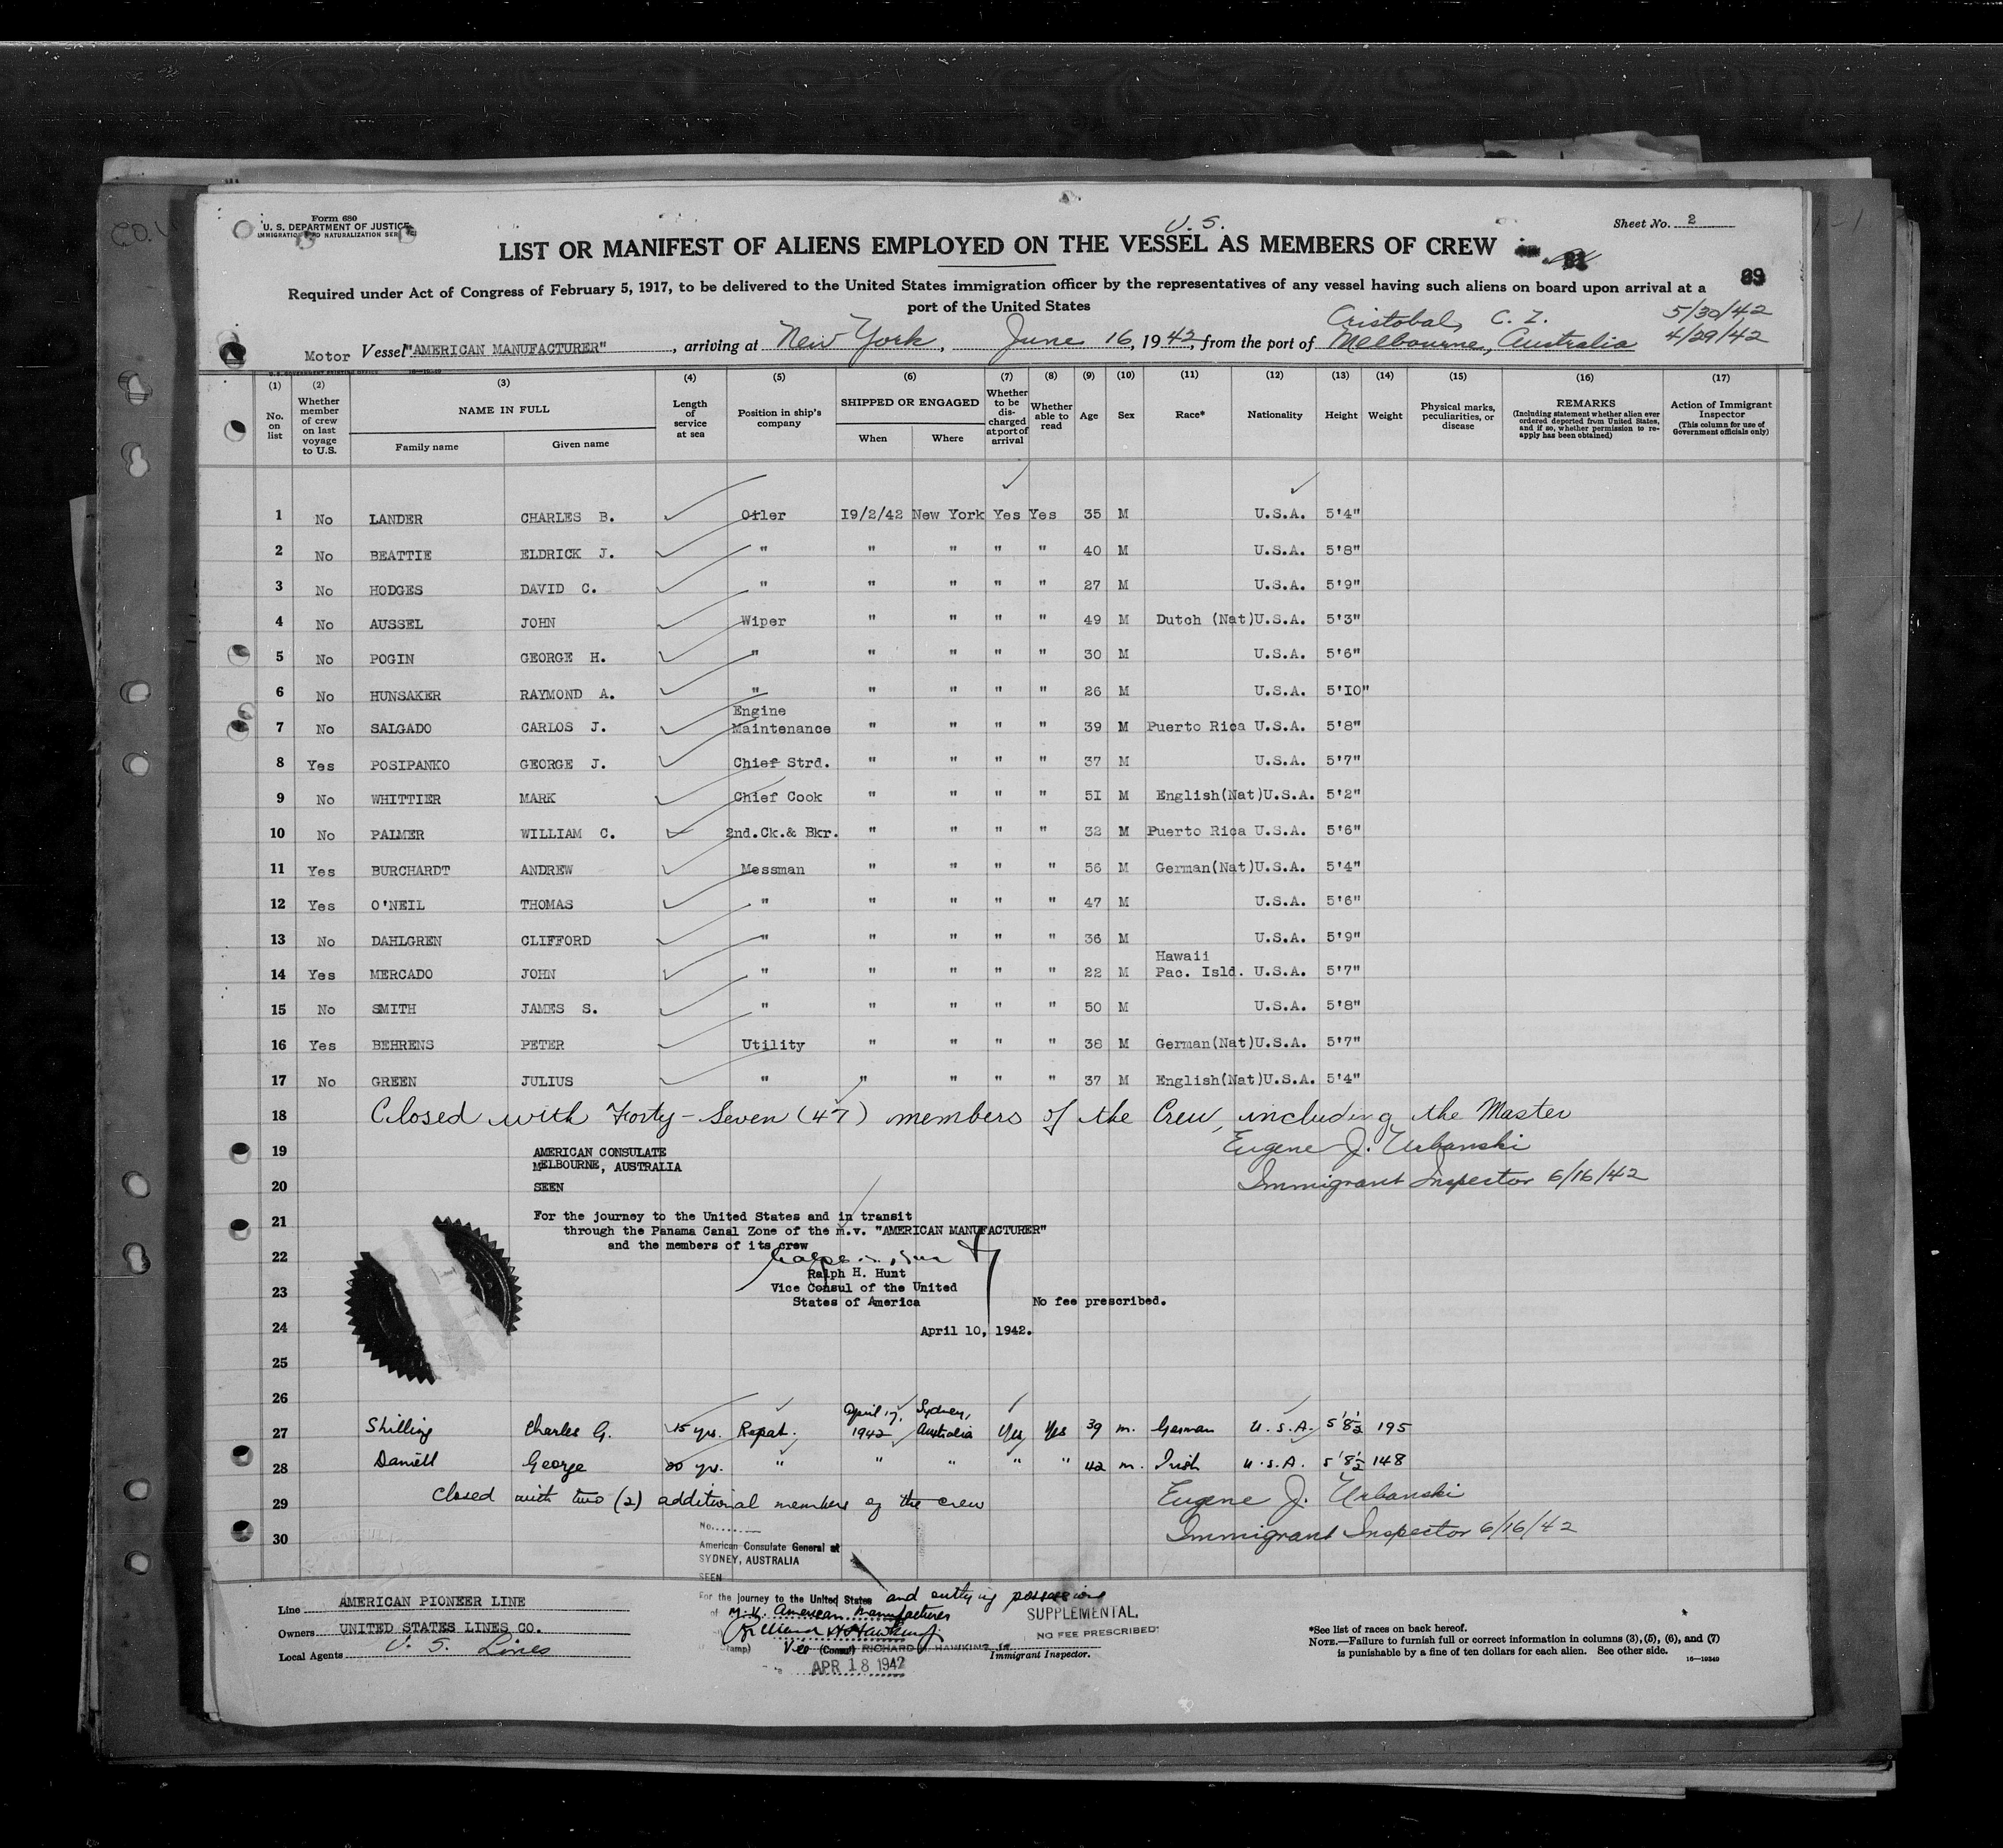 Form 680
U. S. DEPARTMENT OF JUSTICE
IMMIGRATION AND NATURALIZATION SER
U. S.
Sheet No. 2
LIST OR MANIFEST OF ALIENS EMPLOYED ON THE VESSEL AS MEMBERS OF CREW
89
Required under Act of Congress of February 5, 1917, to be delivered to the United States immigration officer by the representatives of any vessel having such aliens on board upon arrival at a
port of the United States
Cristobal, C. Z. 5/30/42
Motor Vessel "AMERICAN MANUFACTURER", arriving at New York, June 16, 1942, from the port of Melbourne, Australia 4/29/42
(1) (2) (3) (4) (5) (6) (7) (8) (9) (10) (11) (12) (13) (14) (15) (16) (17)
No. on list
Whether member of crew on last voyage to U.S.
NAME IN FULL
Family name
Given name
Length of service at sea
Position in ship's company
SHIPPED OR ENGAGED
When
Where
Whether to be discharged at port of arrival
Whether able to read
Age
Sex
Race*
Nationality
Height
Weight
Physical marks, peculiarities, or disease
REMARKS
(Including statement whether alien ever ordered deported from United States, and if so, whether permission to reapply has been obtained)
Action of Immigrant Inspector
(This column for use of Government officials only)
1 No LANDER CHARLES B. Oiler 19/2/42 New York Yes Yes 35 M U.S.A. 5'4"
2 No BEATTIE ELDRICK J. " " " " " 40 M U.S.A. 5'8"
3 No HODGES DAVID C. " " " " " 27 M U.S.A. 5'9"
4 No AUSSEL JOHN Wiper " " " " 49 M Dutch (Nat) U.S.A. 5'3"
5 No POGIN GEORGE H. " " " " " 30 M U.S.A. 5'6"
6 No HUNSAKER RAYMOND A. " " " " " 26 M U.S.A. 5'10"
7 No SALGADO CARLOS J. Engine Maintenance " " " " 39 M Puerto Rica U.S.A. 5'8"
8 Yes POSIPANKO GEORGE J. Chief Strd. " " " " 37 M U.S.A. 5'7"
9 No WHITTIER MARK Chief Cook " " " " 51 M English(Nat) U.S.A. 5'2"
10 No PALMER WILLIAM C. 2nd.Ck.& Bkr. " " " " 32 M Puerto Rica U.S.A. 5'6"
11 Yes BURCHARDT ANDREW Messman " " " " 56 M German(Nat) U.S.A. 5'4"
12 Yes O'NEIL THOMAS " " " " " 47 M U.S.A. 5'6"
13 No DAHLGREN CLIFFORD " " " " " 36 M U.S.A. 5'9"
14 Yes MERCADO JOHN " " " " " 22 M Hawaii Pac. Isld. U.S.A. 5'7"
15 No SMITH JAMES S. " " " " " 50 M U.S.A. 5'8"
16 Yes BEHRENS PETER Utility " " " " 38 M German(Nat) U.S.A. 5'7"
17 No GREEN JULIUS " " " " " 37 M English(Nat) U.S.A. 5'4"
18 Closed with Forty-Seven (47) members of the Crew, including the Master
19 AMERICAN CONSULATE Eugene J. Urbanski
MELBOURNE, AUSTRALIA
20 SEEN Immigrant Inspector 6/16/42
21 For the journey to the United States and in transit
through the Panama Canal Zone of the m.v. "AMERICAN MANUFACTURER"
22 and the members of its crew
Ralph H. Hunt
23 Vice Consul of the United
States of America No fee prescribed.
24 April 10, 1942.
25
26
27 Shilling Charles G. 15 yrs. Repat. April 17, 1942 Sydney, Australia Yes Yes 39 m. German U.S.A. 5'8½ 195
28 Daniell George 20 yrs. " " " " " 42 m. Irish U.S.A. 5'8½ 148
29 Closed with two (2) additional members of the crew Eugene J. Urbanski
30 Immigrant Inspector 6/16/42
No.
American Consulate General at
SYDNEY, AUSTRALIA
SEEN
For the journey to the United States and outlying possessions
of M.V. American Manufacturer
SUPPLEMENTAL.
NO FEE PRESCRIBED
Vice (Consul) RICHARD H. HAWKINS Jr.
APR 18 1942
Immigrant Inspector.
Line AMERICAN PIONEER LINE
Owners UNITED STATES LINES CO.
Local Agents U. S. Lines
*See list of races on back hereof.
NOTE.—Failure to furnish full or correct information in columns (3), (5), (6), and (7)
is punishable by a fine of ten dollars for each alien. See other side.
16—19349